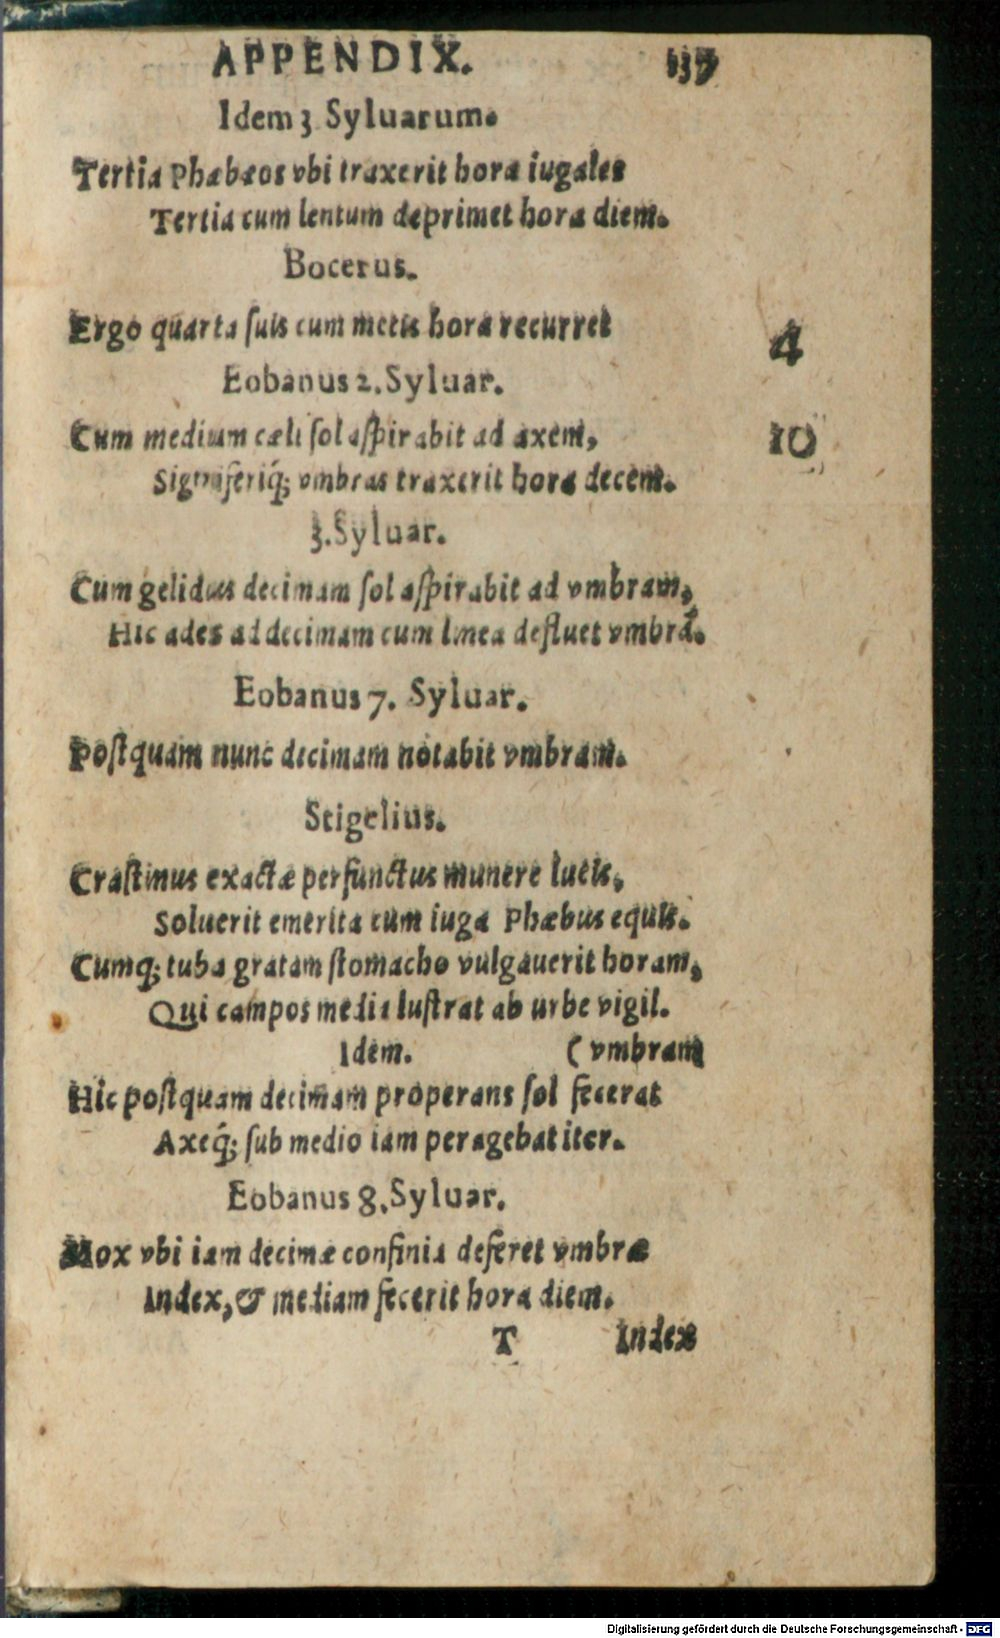 APPENDIX. 137
Idem 3 Syluarum.
Tertia Phæbæos vbi traxerit hora iugales
Tertia cum lentum deprimet hora diem.
Bocerus.
Ergo quarta suis cum metis hora recurret 4
Eobanus 2. Syluar.
Cum medium cæli sol aspirabit ad axem, 10
Signiferiq́; vmbras traxerit hora decem.
3. Syluar.
Cum gelidus decimam sol aspirabit ad vmbram,
Hic ades ad decimam cum linea defluet vmbrã.
Eobanus 7. Syluar.
Postquam nunc decimam notabit vmbram.
Stigelius.
Crastinus exactæ perfunctus munere lucis,
Soluerit emerita cum iuga Phæbus equis.
Cumq; tuba gratam stomacho vulgauerit horam,
Qui campos media lustrat ab urbe vigil.
Idem. (vmbram
Hic postquam decimam properans sol fecerat
Axeq́; sub medio iam peragebat iter.
Eobanus 8. Syluar.
Mox vbi iam decimæ confinia deferet vmbræ
Index, & mediam fecerit hora diem.
T Index
Digitalisierung gefördert durch die Deutsche Forschungsgemeinschaft - DFG